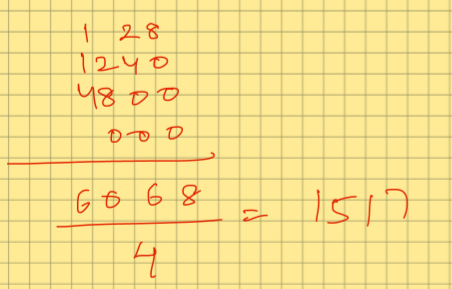 1 28
1240
4800
000
6068
= 1517
4